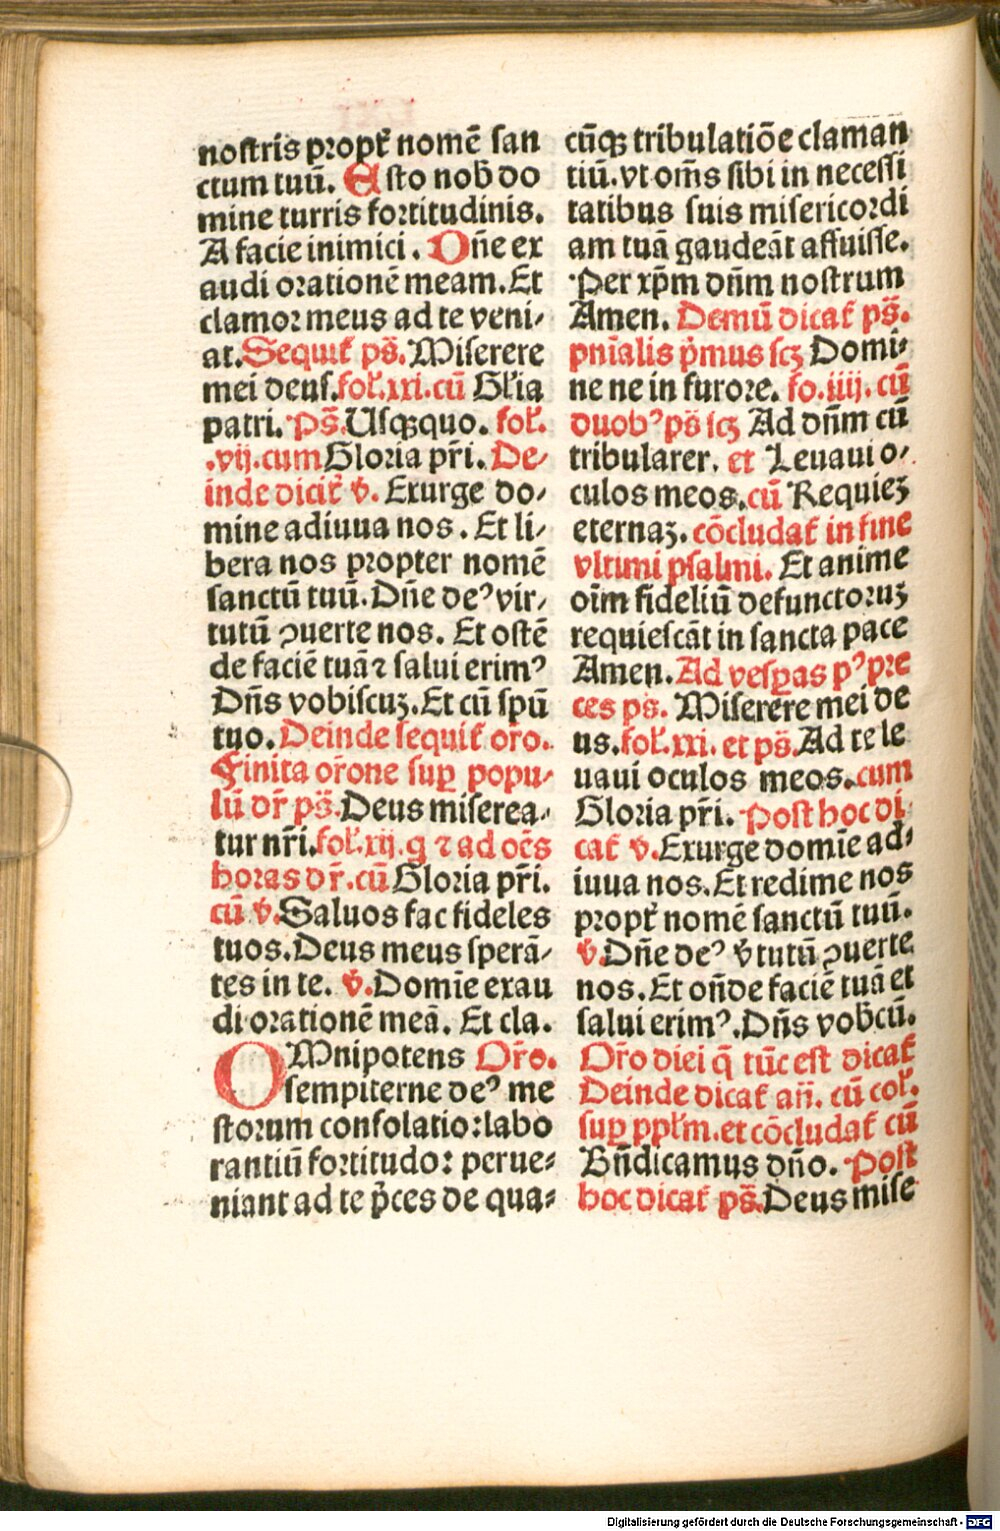 nostris propt̃ nomē san
ctum tuū. Esto nob̃ do
mine turris fortitudinis.
A facie inimici. Dñe ex
audi orationē meam. Et
clamor meus ad te veni-
at. Sequit̃ ps̃. Miserere
mei deus. fol̃. xxi. cū Gl̃ia
patri. Ps̃. Usq̃quo. fol̃.
.vij. cum Gloria pr̃i. De-
inde dicit̃ ṽ. Exurge do-
mine adiuua nos. Et li-
bera nos propter nomē
sanctū tuū. Dñe deꝰ vir-
tutū ꝯuerte nos. Et ostē
de faciē tuā ⁊ salui erimꝰ
Dñs vobiscuꝫ. Et cū spū
tuo. Deinde sequit̃ or̃o.
Finita or̃one sup̱ popu-
lū dr̃ ps̃. Deus miserea-
tur nr̃i. fol̃. xij. q ⁊ ad oēs
horas dr̃. cū Gloria pr̃i.
cū ṽ. Saluos fac fideles
tuos. Deus meus sperā-
tes in te. ṽ. Domīe exau
di orationē meā. Et cla.
OMnipotens Or̃o.
sempiterne deꝰ me
storum consolatio: labo
rantiū fortitudo: perue-
niant ad te p̃ces de qua-
cūqꝫ tribulatiōe claman
tiū. vt om̃s sibi in necessi
tatibus suis misericordi
am tuā gaudeāt affuisse.
Per xp̃m dñm nostrum
Amen. Demū dicat̃ ps̃.
pnīalis p̃mus scꝫ Domi-
ne ne in furore. fo. iiij. cū
duobꝰ ps̃ scꝫ Ad dñm cū
tribularer. et Leuaui o-
culos meos. cū Requieꝫ
eternaꝫ. cōcludat̃ in fine
vltimi psalmi. Et anime
oīm fideliū defunctoruꝫ
requiescāt in sancta pace
Amen. Ad vesp̱as pꝰ pre
ces ps. Miserere mei de
us. fol̃. xxi. et ps̃. Ad te le
uaui oculos meos. cum
Gloria pr̃i. Post hoc di
cat̃ ṽ. Exurge domīe ad-
iuua nos. Et redime nos
propt̃ nomē sanctū tuū.
ṽ. Dñe deꝰ ṽtutū ꝯuerte
nos. Et oñde faciē tuā et
salui erimꝰ. Dñs vob̃cū.
Or̃o diei q̄ tūc est dicat̃
Deinde dicat̃ añ. cū col̃.
sup̱ ppl̃m. et cōcludat̃ cū
Bñdicamus dño. Post
hoc dicat̃ ps̃. Deus mise
Digitalisierung gefördert durch die Deutsche Forschungsgemeinschaft - DFG